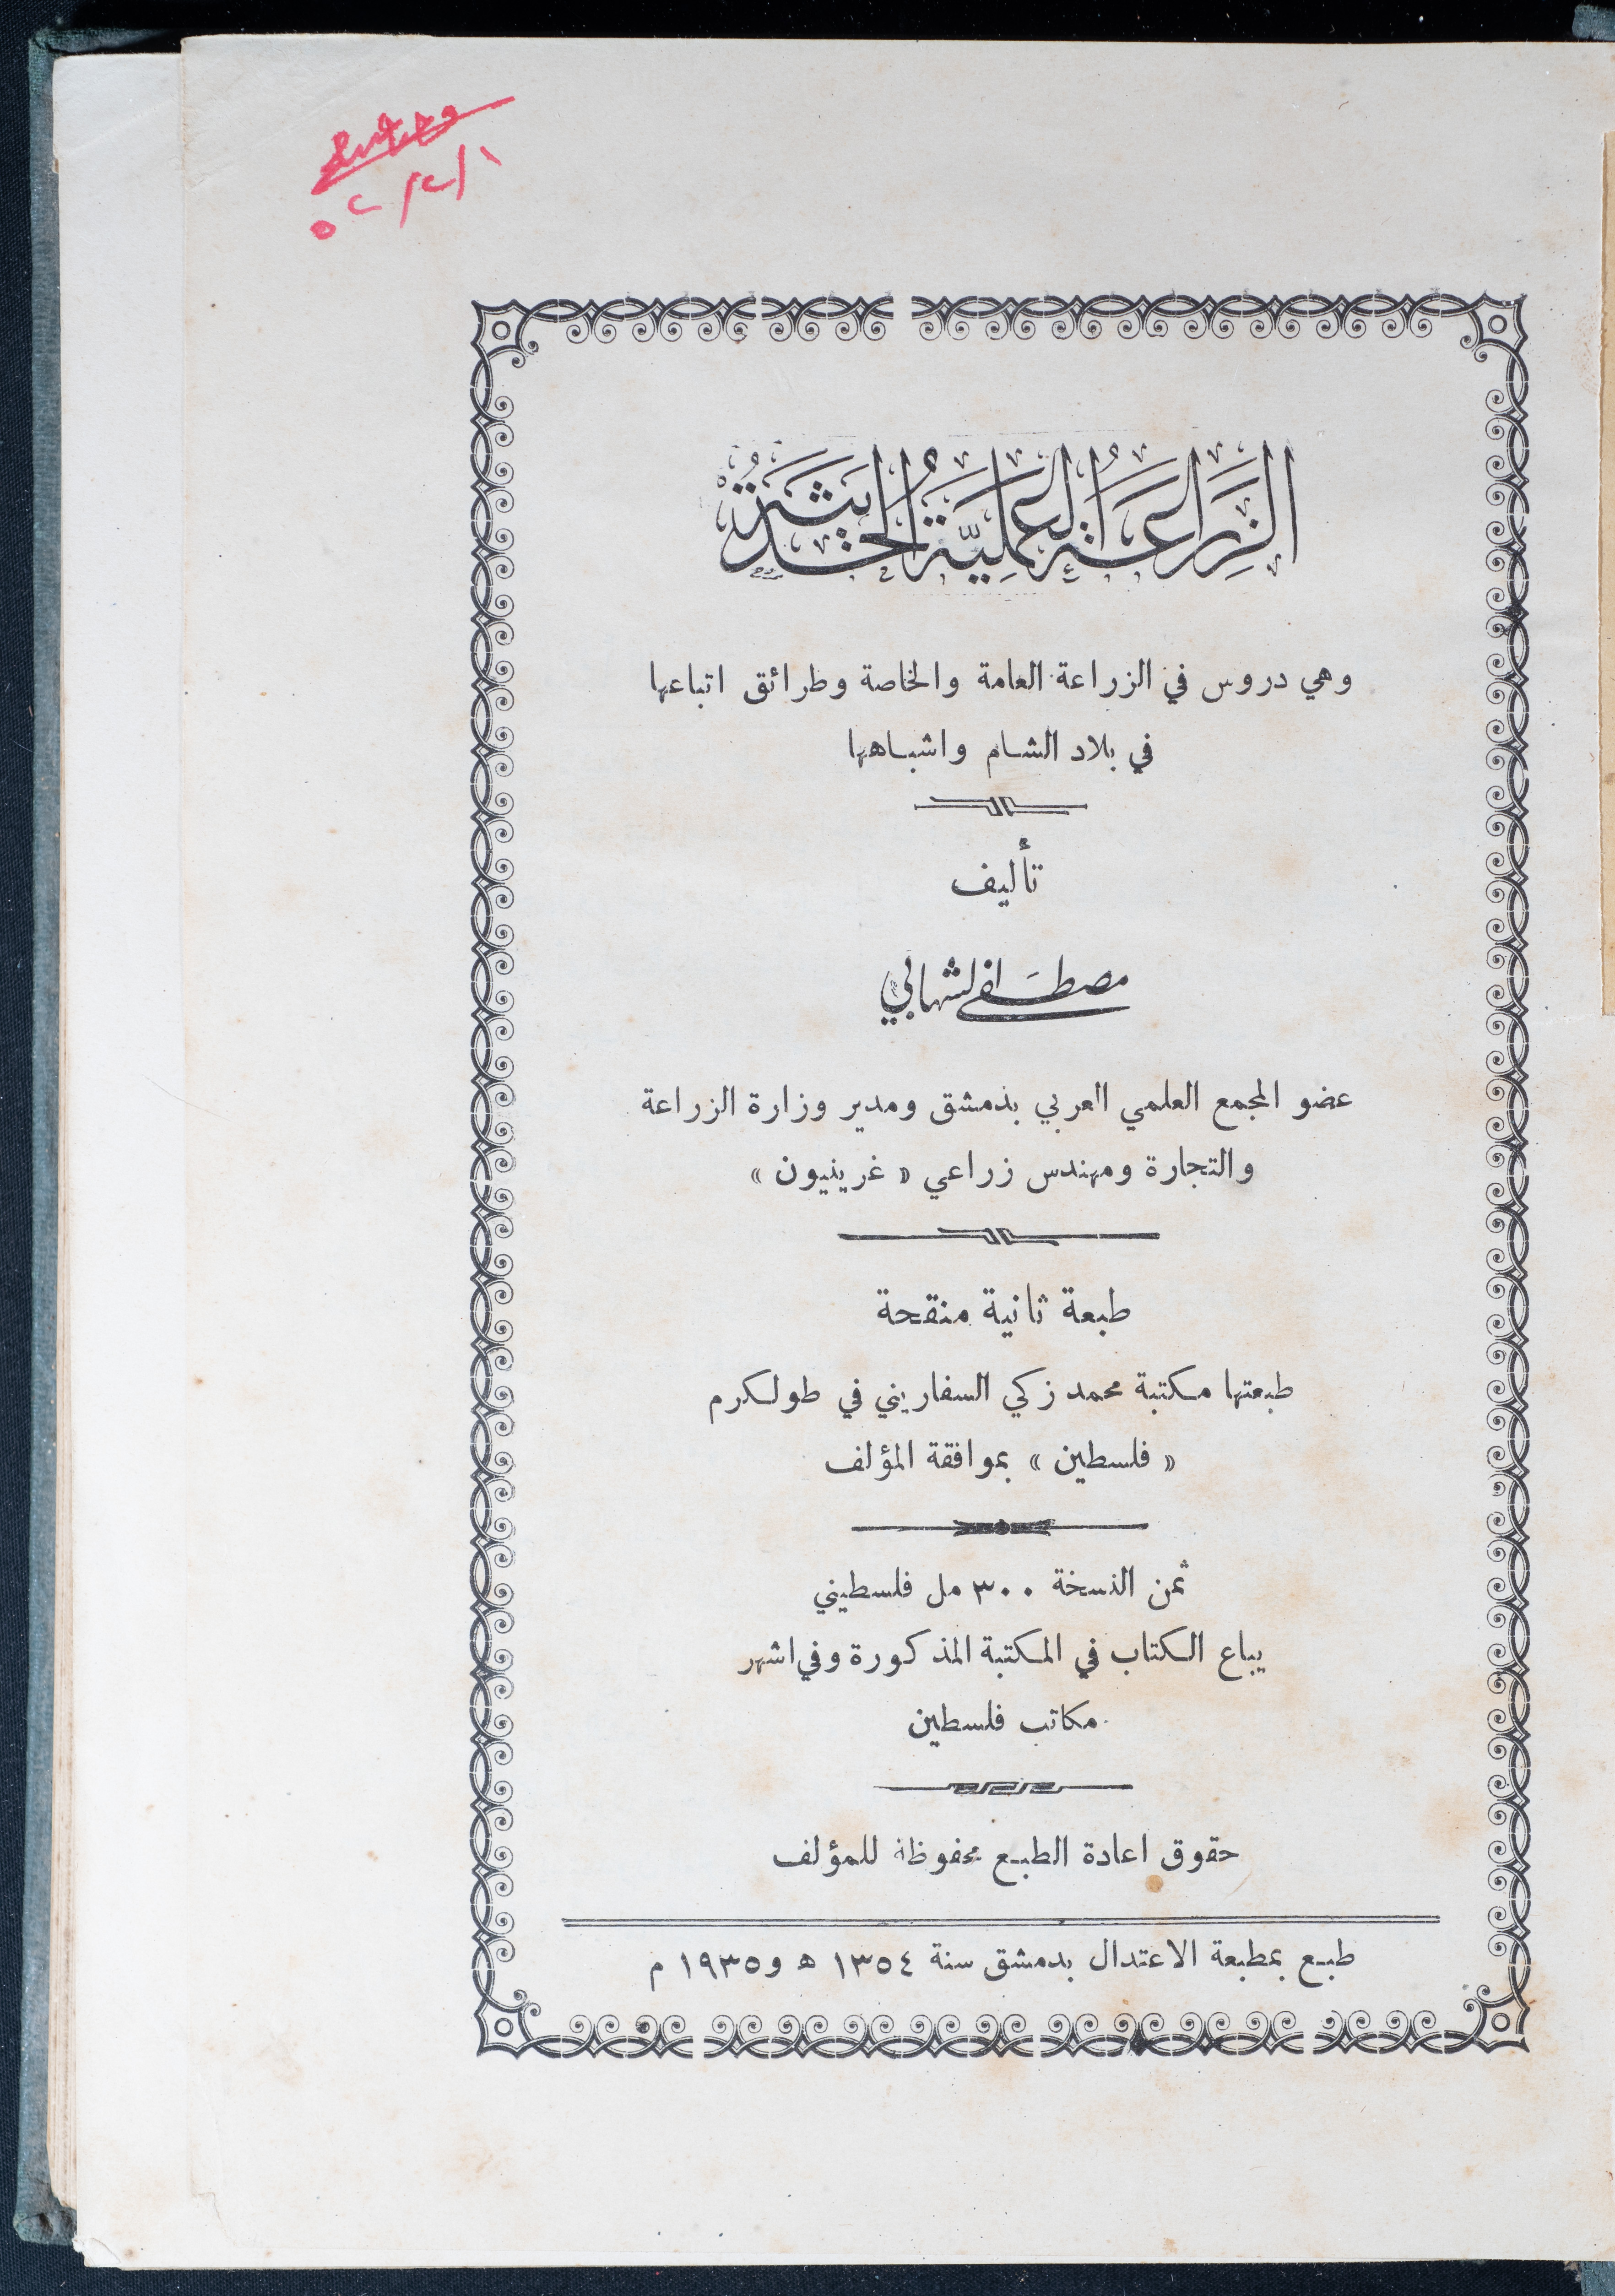 الزِراعَةُ العَمَلِيَّةُ الحَدِيثَةُ
وهي دروس في الزراعة العامة والخاصة وطرائق اتباعها
في بلاد الشام واشباهها
تأليف
مصطفى الشهابي
عضو المجمع العلمي العربي بدمشق ومدير وزارة الزراعة
والتجارة ومهندس زراعي « غرينيون »
طبعة ثانية منقحة
طبعتها مكتبة محمد زكي السفاريني في طولكرم
« فلسطين » بموافقة المؤلف
ثمن النسخة ٣٠٠ مل فلسطيني
يباع الكتاب في المكتبة المذكورة وفي اشهر
مكاتب فلسطين
حقوق اعادة الطبع محفوظة للمؤلف
طبع بمطبعة الاعتدال بدمشق سنة ١٣٥٤ ه و١٩٣٥ م